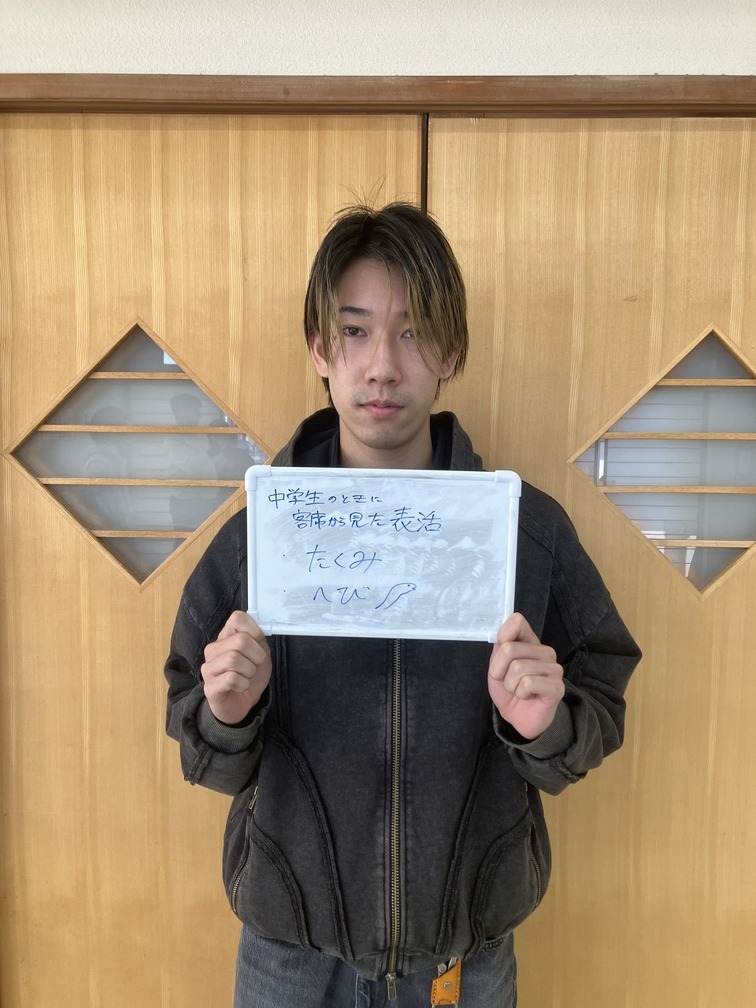 中学生のときに
客席から見た表活
・たくみ
・へび